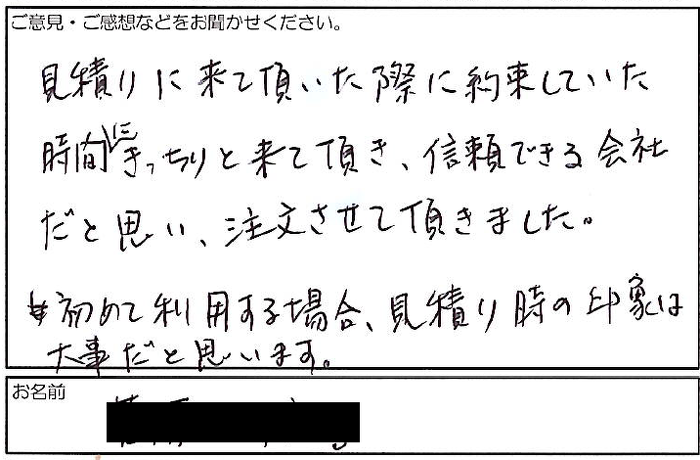 ご意見・ご感想などをお聞かせください。
見積りに来て頂いた際に約束していた
時間にきっちりと来て頂き、信頼できる会社
だと思い、注文させて頂きました。
初めて利用する場合、見積り時の印象は
大事だと思います。
お名前